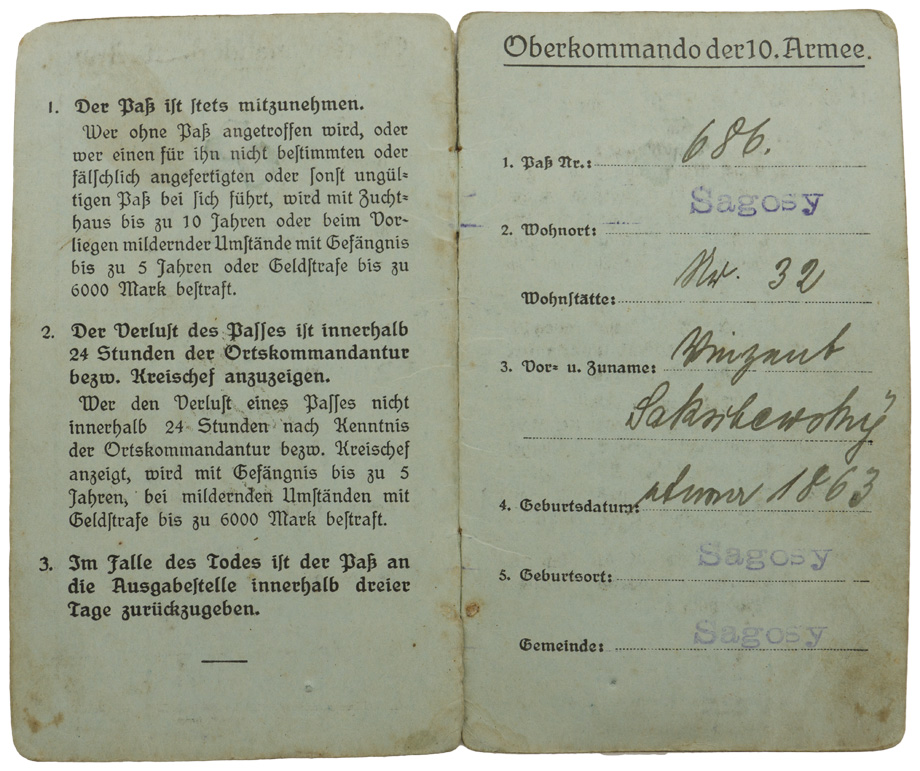 1. Der Paß ist stets mitzunehmen.
Wer ohne Paß angetroffen wird, oder
wer einen für ihn nicht bestimmten oder
fälschlich angefertigten oder sonst ungül-
tigen Paß bei sich führt, wird mit Zucht-
haus bis zu 10 Jahren oder beim Vor-
liegen mildernder Umstände mit Gefängnis
bis zu 5 Jahren oder Geldstrafe bis zu
6000 Mark bestraft.
2. Der Verlust des Passes ist innerhalb
24 Stunden der Ortskommandantur
bezw. Kreischef anzuzeigen.
Wer den Verlust eines Passes nicht
innerhalb 24 Stunden nach Kenntnis
der Ortskommandantur bezw. Kreischef
anzeigt, wird mit Gefängnis bis zu 5
Jahren, bei mildernden Umständen mit
Geldstrafe bis zu 6000 Mark bestraft.
3. Im Falle des Todes ist der Paß an
die Ausgabestelle innerhalb dreier
Tage zurückzugeben.
Oberkommando der 10. Armee.
1. Paß Nr.: 686.
2. Wohnort: Sagosy
Wohnstätte: Nr. 32
3. Vor- u. Zuname: Vinzent
4. Geburtsdatum: 1863
5. Geburtsort: Sagosy
Gemeinde: Sagosy